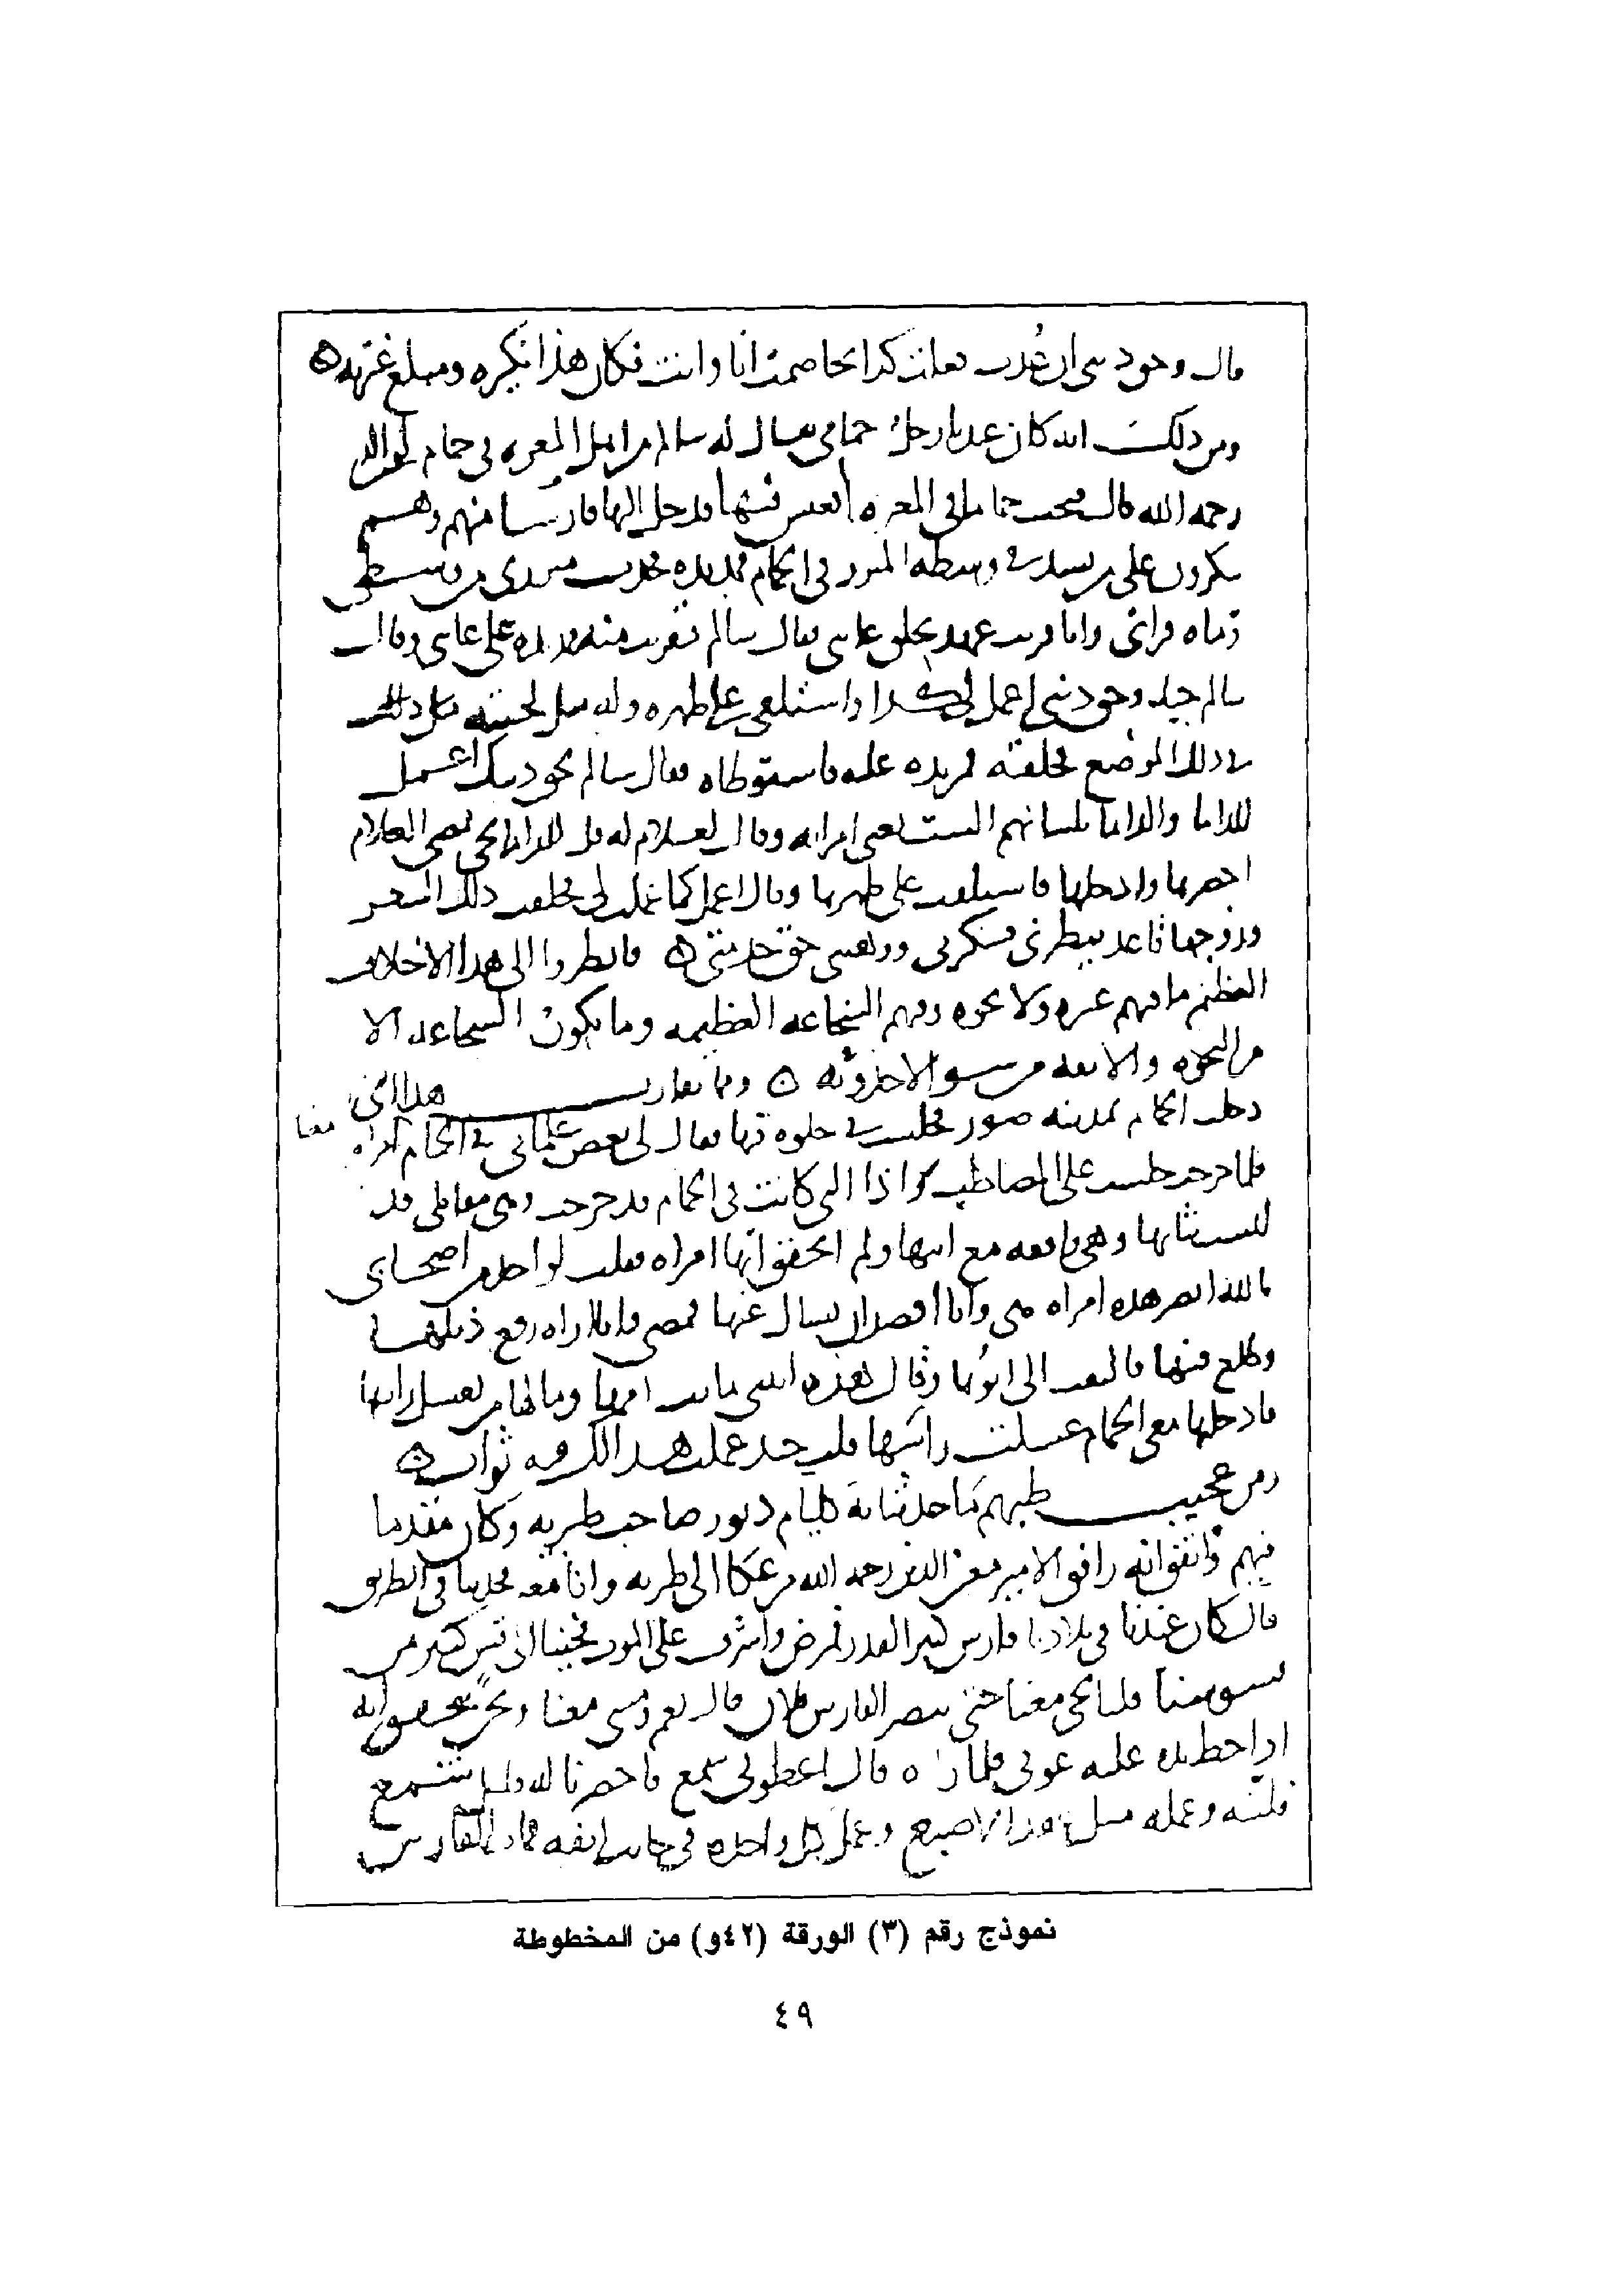 قال وحق ديني ان عدت فعلت كذا تخاصمت انا وانت فكان هذا نكيره ومبلغ غيرته ه
ومن ذلك انه كان عندنا رجل حمامي يقال له سالم من اهل المعره في حمام لوالدي
رحمه الله قال فتحت حماما في المعره اتعيش فيها فدخل اليها فارس منهم وهم
ينكرون على من يشد في وسطه الميزر في الحمام فمد يده فجذب ميزري من وسطي
رماه فراني وانا قريب عهد بحلق عانتي فقال سالم فتقربت منه فمد يده على عانتي وقال
سالم جيد وحق ديني اعمل لي كذا واستلقى على ظهره وله مثل لحيته
في ذلك الموضع فحلقته فمر يده عليه فاستوطاه فقال سالم بحق دينك اعمل
للداما والداما بلسانهم الست يعني امراته وقال لغلام له قل للداما تجي فمضى الغلام
احضرها وادخلها فاستلقت على ظهرها وقال اعمل كما عملت لي فحلقت ذلك الشعر
وزوجها قاعد ينظرني فشكرني ووهبني حق خدمتي ه فانظروا الى هذا الاختلاف
العظيم ما فيهم غيره ولا نخوه وفيهم الشجاعه العظيمه وما تكون الشجاعه الا
من النخوه والانفه من سو الاحدوثه ه ومما يقارب هذا انني
دخلت الحمام بمدينه صور فجلست في خلوه فيها فقال لي بعض غلماني في الحمام معنا امراه
فلما خرجت جلست على المصاطب واذا التي كانت في الحمام قد خرجت وهي مقابلي قد
لبست ثيابها وهي واقفه مع ابيها ولم اتحقق انها امراه فقلت لواحد من اصحابي
بالله ابصر هذه امراه هي وانا اقصد ان يسال عنها فمضى وانا اراه رفع ذيلها
وطلع فيها فالتفت الى ابوها وقال هذه ابنتي ماتت امها وما لها من يغسل راسها
فادخلتها معي الحمام غسلت راسها قلت جيد عملت هذا لك فيه ثواب ه
ومن عجيب طبهم ما حدثنا به كليام دبور صاحب طبريه وكان مقدما
فيهم واتفق انه رافق الامير معين الدين رحمه الله من عكا الى طبريه وانا معه فحدثنا في الطريق
قال كان عندنا في بلادنا فارس كبير القدر فمرض واشرف على الموت فجينا الى قس كبير من
قسوسنا قلنا تجي معنا حتى تبصر الفارس فلان قال نعم ومشى معنا ونحن نتحقق انه
اذا حط يده عليه عوفي فلما راه قال اعطوني شمع فاحضرنا له قليل شمع
فلينه وعمله مثل عقد الاصبع وعمل كل واحده في جانب انفه فمات الفارس
نموذج رقم (٣) الورقة (٤٢و) من المخطوطة
٤٩